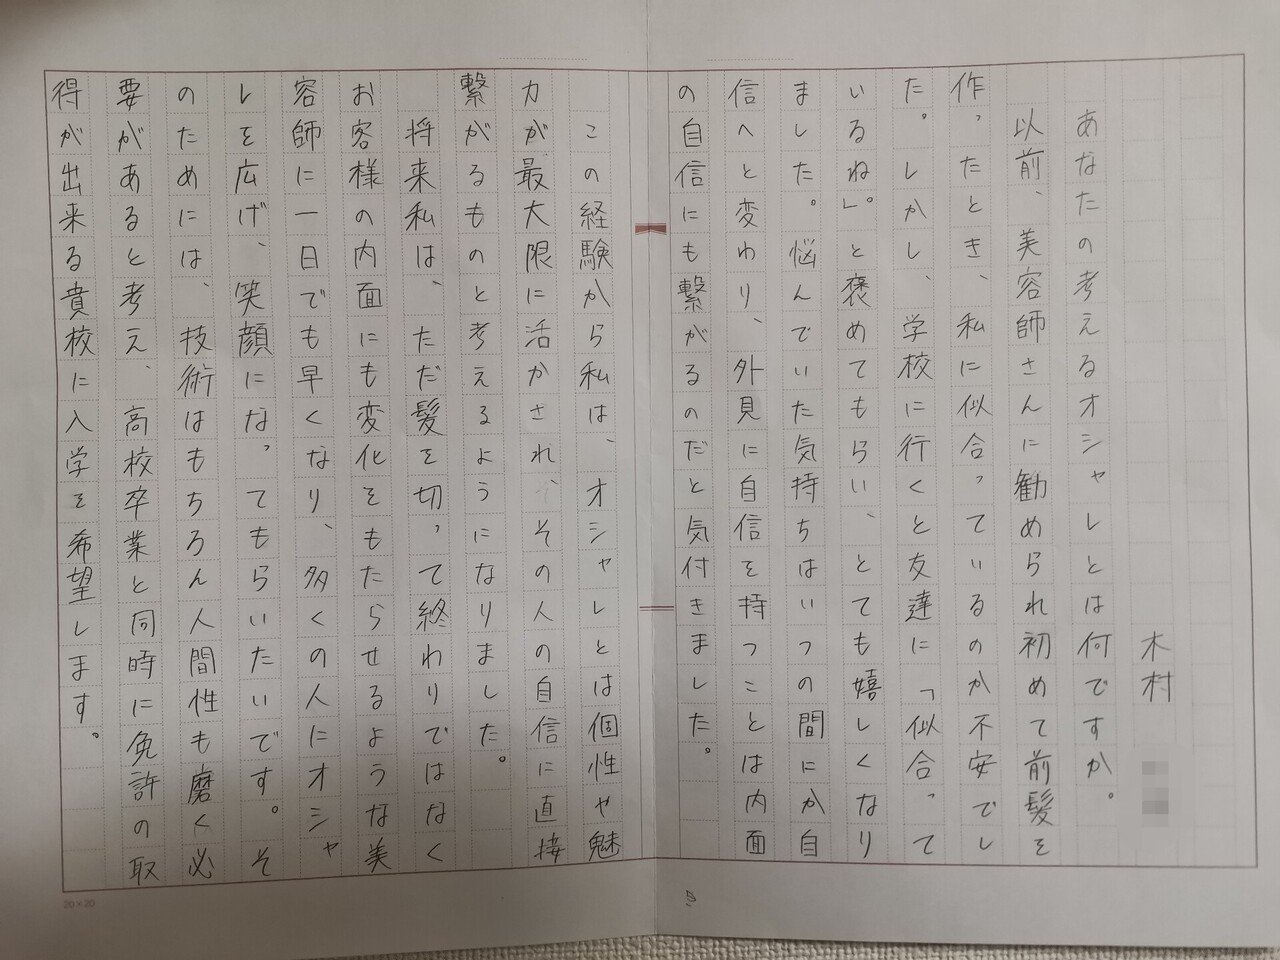 木村
あなたの考えるオシャレとは何ですか。
以前、美容師さんに勧められ初めて前髪を
作ったとき、私に似合っているのか不安でし
た。しかし、学校に行くと友達に「似合って
いるね」と褒めてもらい、とても嬉しくなり
ました。悩んでいた気持ちはいつの間にか自
信へと変わり、外見に自信を持つことは内面
の自信にも繋がるのだと気付きました。
この経験から私は、オシャレとは個性や魅
力が最大限に活かされ、その人の自信に直接
繋がるものと考えるようになりました。
将来私は、ただ髪を切って終わりではなく
お客様の内面にも変化をもたらせるような美
容師に一日でも早くなり、多くの人にオシャ
レを広げ、笑顔になってもらいたいです。そ
のためには、技術はもちろん人間性も磨く必
要があると考え、高校卒業と同時に免許の取
得が出来る貴校に入学を希望します。
20×20